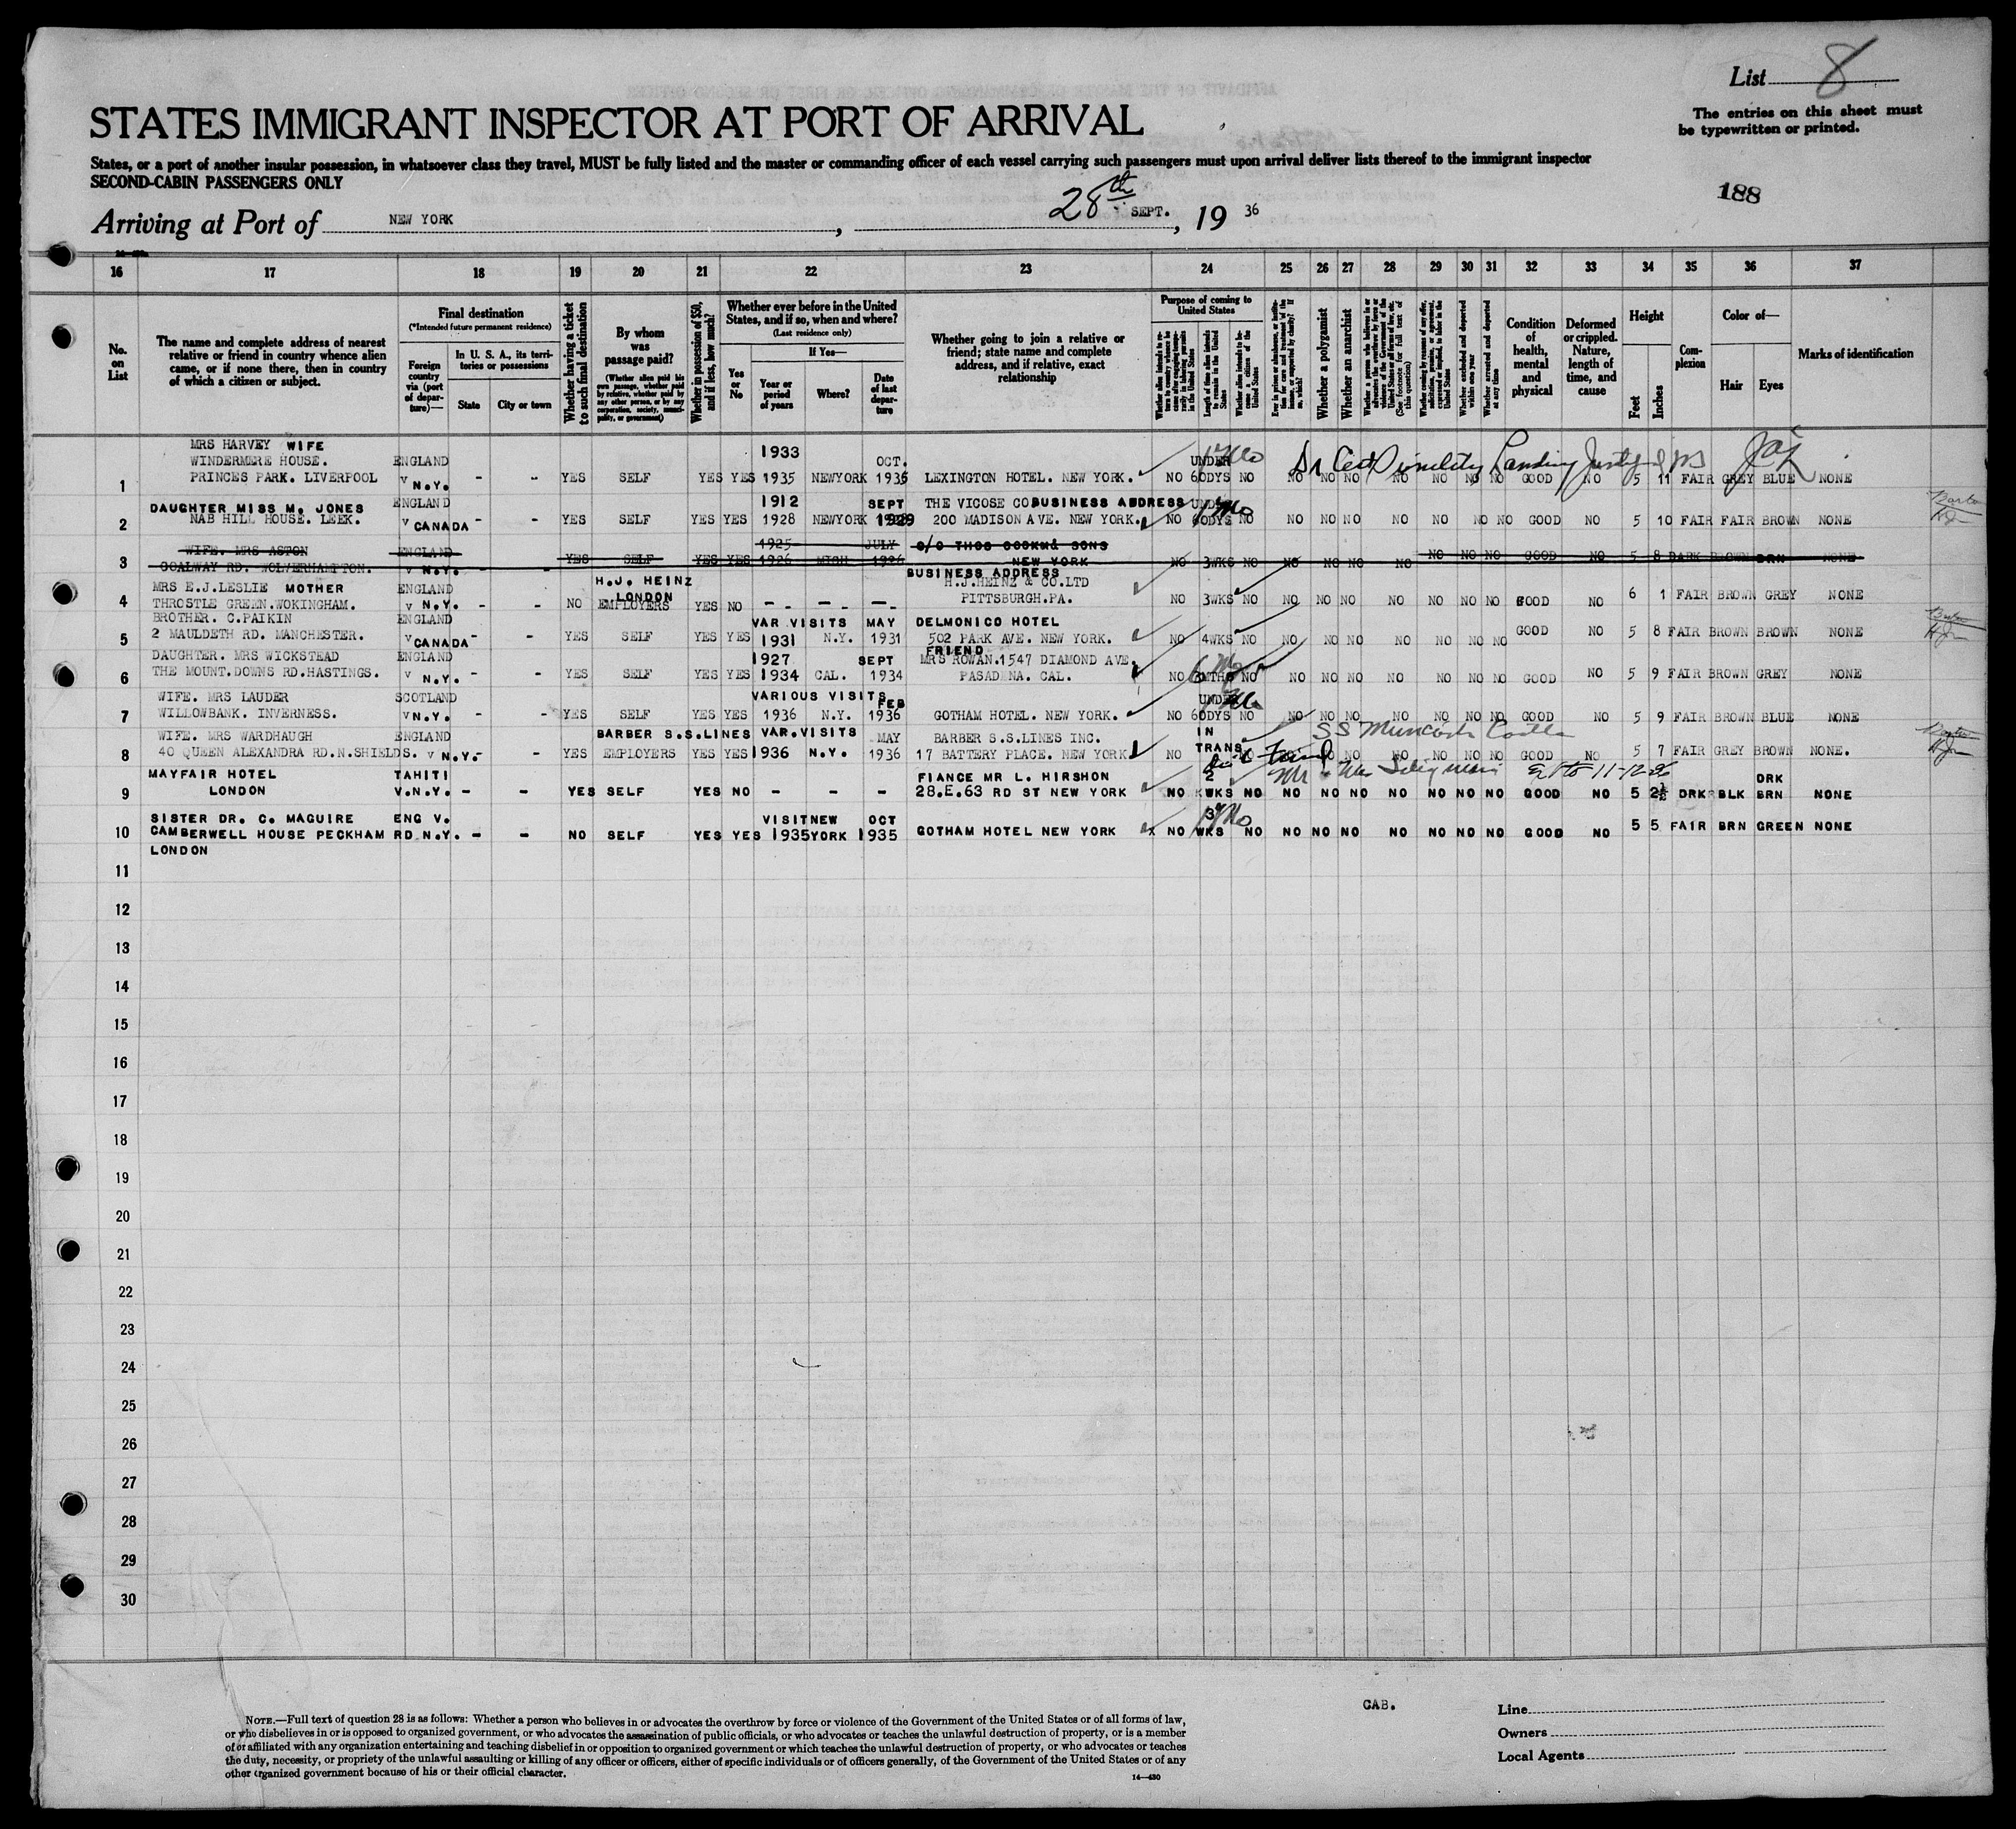 List 8
The entries on this sheet must
be typewritten or printed.
STATES IMMIGRANT INSPECTOR AT PORT OF ARRIVAL
States, or a port of another insular possession, in whatsoever class they travel, MUST be fully listed and the master or commanding officer of each vessel carrying such passengers must upon arrival deliver lists thereof to the immigrant inspector
SECOND-CABIN PASSENGERS ONLY
188
Arriving at Port of NEW YORK, 28th SEPT., 19 36
16 17 18 19 20 21 22 23 24 25 26 27 28 29 30 31 32 33 34 35 36 37
No. on List
The name and complete address of nearest relative or friend in country whence alien came, or if none there, then in country of which a citizen or subject.
Final destination
(*Intended future permanent residence)
Foreign country via (port of departure)—
In U. S. A., its territories or possessions
State
City or town
Whether having a ticket to such final destination
By whom was passage paid?
(Whether alien paid his own passage, whether paid by relative, whether paid by any other person, or by any corporation, society, municipality, or government)
Whether in possession of $50, and if less, how much?
Whether ever before in the United States, and if so, when and where?
(Last residence only)
Yes or No
If Yes—
Year or period of years
Where?
Date of last departure
Whether going to join a relative or friend; state name and complete address, and if relative, exact relationship
Purpose of coming to United States
Length of time alien intends to remain in the United States
Whether alien intends to become a citizen of the United States
Whether a polygamist
Whether an anarchist
Whether excluded and deported within one year
Whether arrested and deported at any time
Condition of health, mental and physical
Deformed or crippled. Nature, length of time, and cause
Height
Feet
Inches
Complexion
Color of—
Hair
Eyes
Marks of identification
MRS HARVEY WIFE 1933
WINDERMERE HOUSE. ENGLAND OCT. UNDER
1 PRINCES PARK. LIVERPOOL V N.Y. - - YES SELF YES YES 1935 NEWYORK 1935 LEXINGTON HOTEL. NEW YORK. NO 60DYS NO NO NO NO NO NO NO NO GOOD NO 5 11 FAIR GREY BLUE NONE
DAUGHTER MISS M. JONES ENGLAND 1912 SEPT THE VICOSE CO BUSINESS ADDRESS UNDER
2 NAB HILL HOUSE. LEEK. V CANADA - - YES SELF YES YES 1928 NEWYORK 1929 200 MADISON AVE. NEW YORK. NO 60DYS NO NO NO NO NO NO NO NO GOOD NO 5 10 FAIR FAIR BROWN NONE
WIFE. MRS ASTON ENGLAND 1925 JULY C/O THOS COOKM& SONS
3 GOALWAY RD. WOLVERHAMPTON. V N.Y. YES SELF YES YES 1926 MICH 1926 NEW YORK NO 3WKS NO NO NO NO NO NO NO NO GOOD NO 5 8 DARK BROWN BRN NONE
MRS E.J.LESLIE MOTHER ENGLAND H.J. HEINZ LONDON BUSINESS ADDRESS H.J.HEINZ & CO.LTD
4 THROSTLE GREEN.WOKINGHAM. V N.Y. - - NO EMPLOYERS YES NO - - - PITTSBURGH.PA. NO 3WKS NO NO NO NO NO NO NO NO GOOD NO 6 1 FAIR BROWN GREY NONE
BROTHER. C.PAIKIN ENGLAND VAR VISITS MAY DELMONICO HOTEL
5 2 MAULDETH RD. MANCHESTER. V CANADA - - YES SELF YES YES 1931 N.Y. 1931 502 PARK AVE. NEW YORK. NO 4WKS NO NO NO NO NO NO NO NO GOOD NO 5 8 FAIR BROWN BROWN NONE
DAUGHTER. MRS WICKSTEAD ENGLAND 1927 SEPT FRIEND MRS ROWAN.1547 DIAMOND AVE.
6 THE MOUNT.DOWNS RD.HASTINGS. V N.Y. - - YES SELF YES YES 1934 CAL. 1934 PASADENA. CAL. NO 6MTHS NO NO NO NO NO NO NO NO GOOD NO 5 9 FAIR BROWN GREY NONE
WIFE. MRS LAUDER SCOTLAND VARIOUS VISITS FEB UNDER
7 WILLOWBANK. INVERNESS. V N.Y. - - YES SELF YES YES 1936 N.Y. 1936 GOTHAM HOTEL. NEW YORK. NO 60DYS NO NO NO NO NO NO NO NO GOOD NO 5 9 FAIR BROWN BLUE NONE
WIFE. MRS WARDHAUGH ENGLAND BARBER S.S.LINES VAR.VISITS MAY BARBER S.S.LINES INC. IN SS Muncaster Castle
8 40 QUEEN ALEXANDRA RD.N.SHIELDS. V N.Y. - - YES EMPLOYERS YES YES 1936 N.Y. 1936 17 BATTERY PLACE. NEW YORK. NO TRANS NO NO NO NO NO NO GOOD NO 5 7 FAIR GREY BROWN NONE.
MAYFAIR HOTEL TAHITI FIANCE MR L. HIRSHON 2 11-12-36 DRK
9 LONDON V.N.Y. - - YES SELF YES NO - - - 28.E.63 RD ST NEW YORK NO WKS NO NO NO NO NO NO NO NO GOOD NO 5 2½ DRK BLK BRN NONE
SISTER DR. C. MAGUIRE ENG V. VISIT NEW OCT 3
10 CAMBERWELL HOUSE PECKHAM RD N.Y. - - NO SELF YES YES 1935 YORK 1935 GOTHAM HOTEL NEW YORK X NO WKS NO NO NO NO NO NO NO NO GOOD NO 5 5 FAIR BRN GREEN NONE
LONDON
11
12
13
14
15
16
17
18
19
20
21
22
23
24
25
26
27
28
29
30
CAB.
Line
Owners
Local Agents
NOTE.—Full text of question 28 is as follows: Whether a person who believes in or advocates the overthrow by force or violence of the Government of the United States or of all forms of law,
or who disbelieves in or is opposed to organized government, or who advocates the assassination of public officials, or who advocates or teaches the unlawful destruction of property, or is a member
of or affiliated with any organization entertaining and teaching disbelief in or opposition to organized government or which teaches the unlawful destruction of property, or who advocates or teaches
the duty, necessity, or propriety of the unlawful assaulting or killing of any officer or officers, either of specific individuals or of officers generally, of the Government of the United States or of any
other organized government because of his or their official character.
14—430